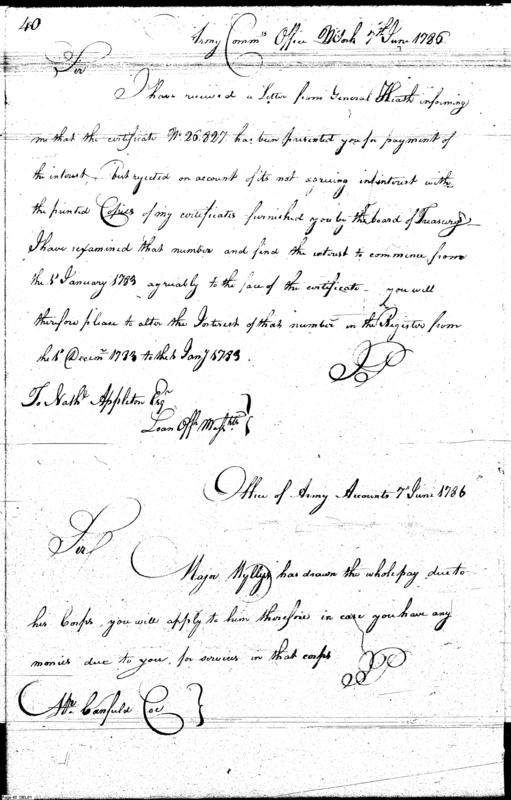 40
Army Comm^rs Office NYork 7th June 1786
Sir
I have received a Letter from General Heath informing
me that the certificate No. 26.827 has been presented you for payment of
the interest, but rejected on account of its not agreeing in interest with
the printed Copies of my certificates furnished you by the board of Treasury
I have reexamined that number and find the interest to commence from
the 1st January 1783 agreeably to the face of the certificate - you will
therefore please to alter the Interest of that number in the Register from
the 1st Decem^r 1783 to the 1 Jany 1783.
JP
To Nathl Appleton Esqr
Loan Offr Massts
Office of Army Accounts 7th June 1786
Sir
Major Wyllys has drawn the whole pay due to
his Corps you will apply to him therefore in case you have any
monies due to you for services in that corps
JP
Mr. Canfield Coe